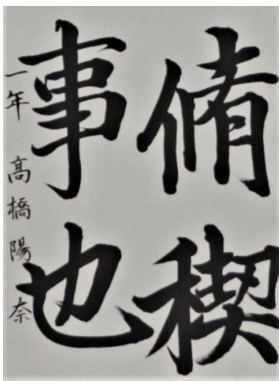 脩稧
事也
一年 高橋陽奈